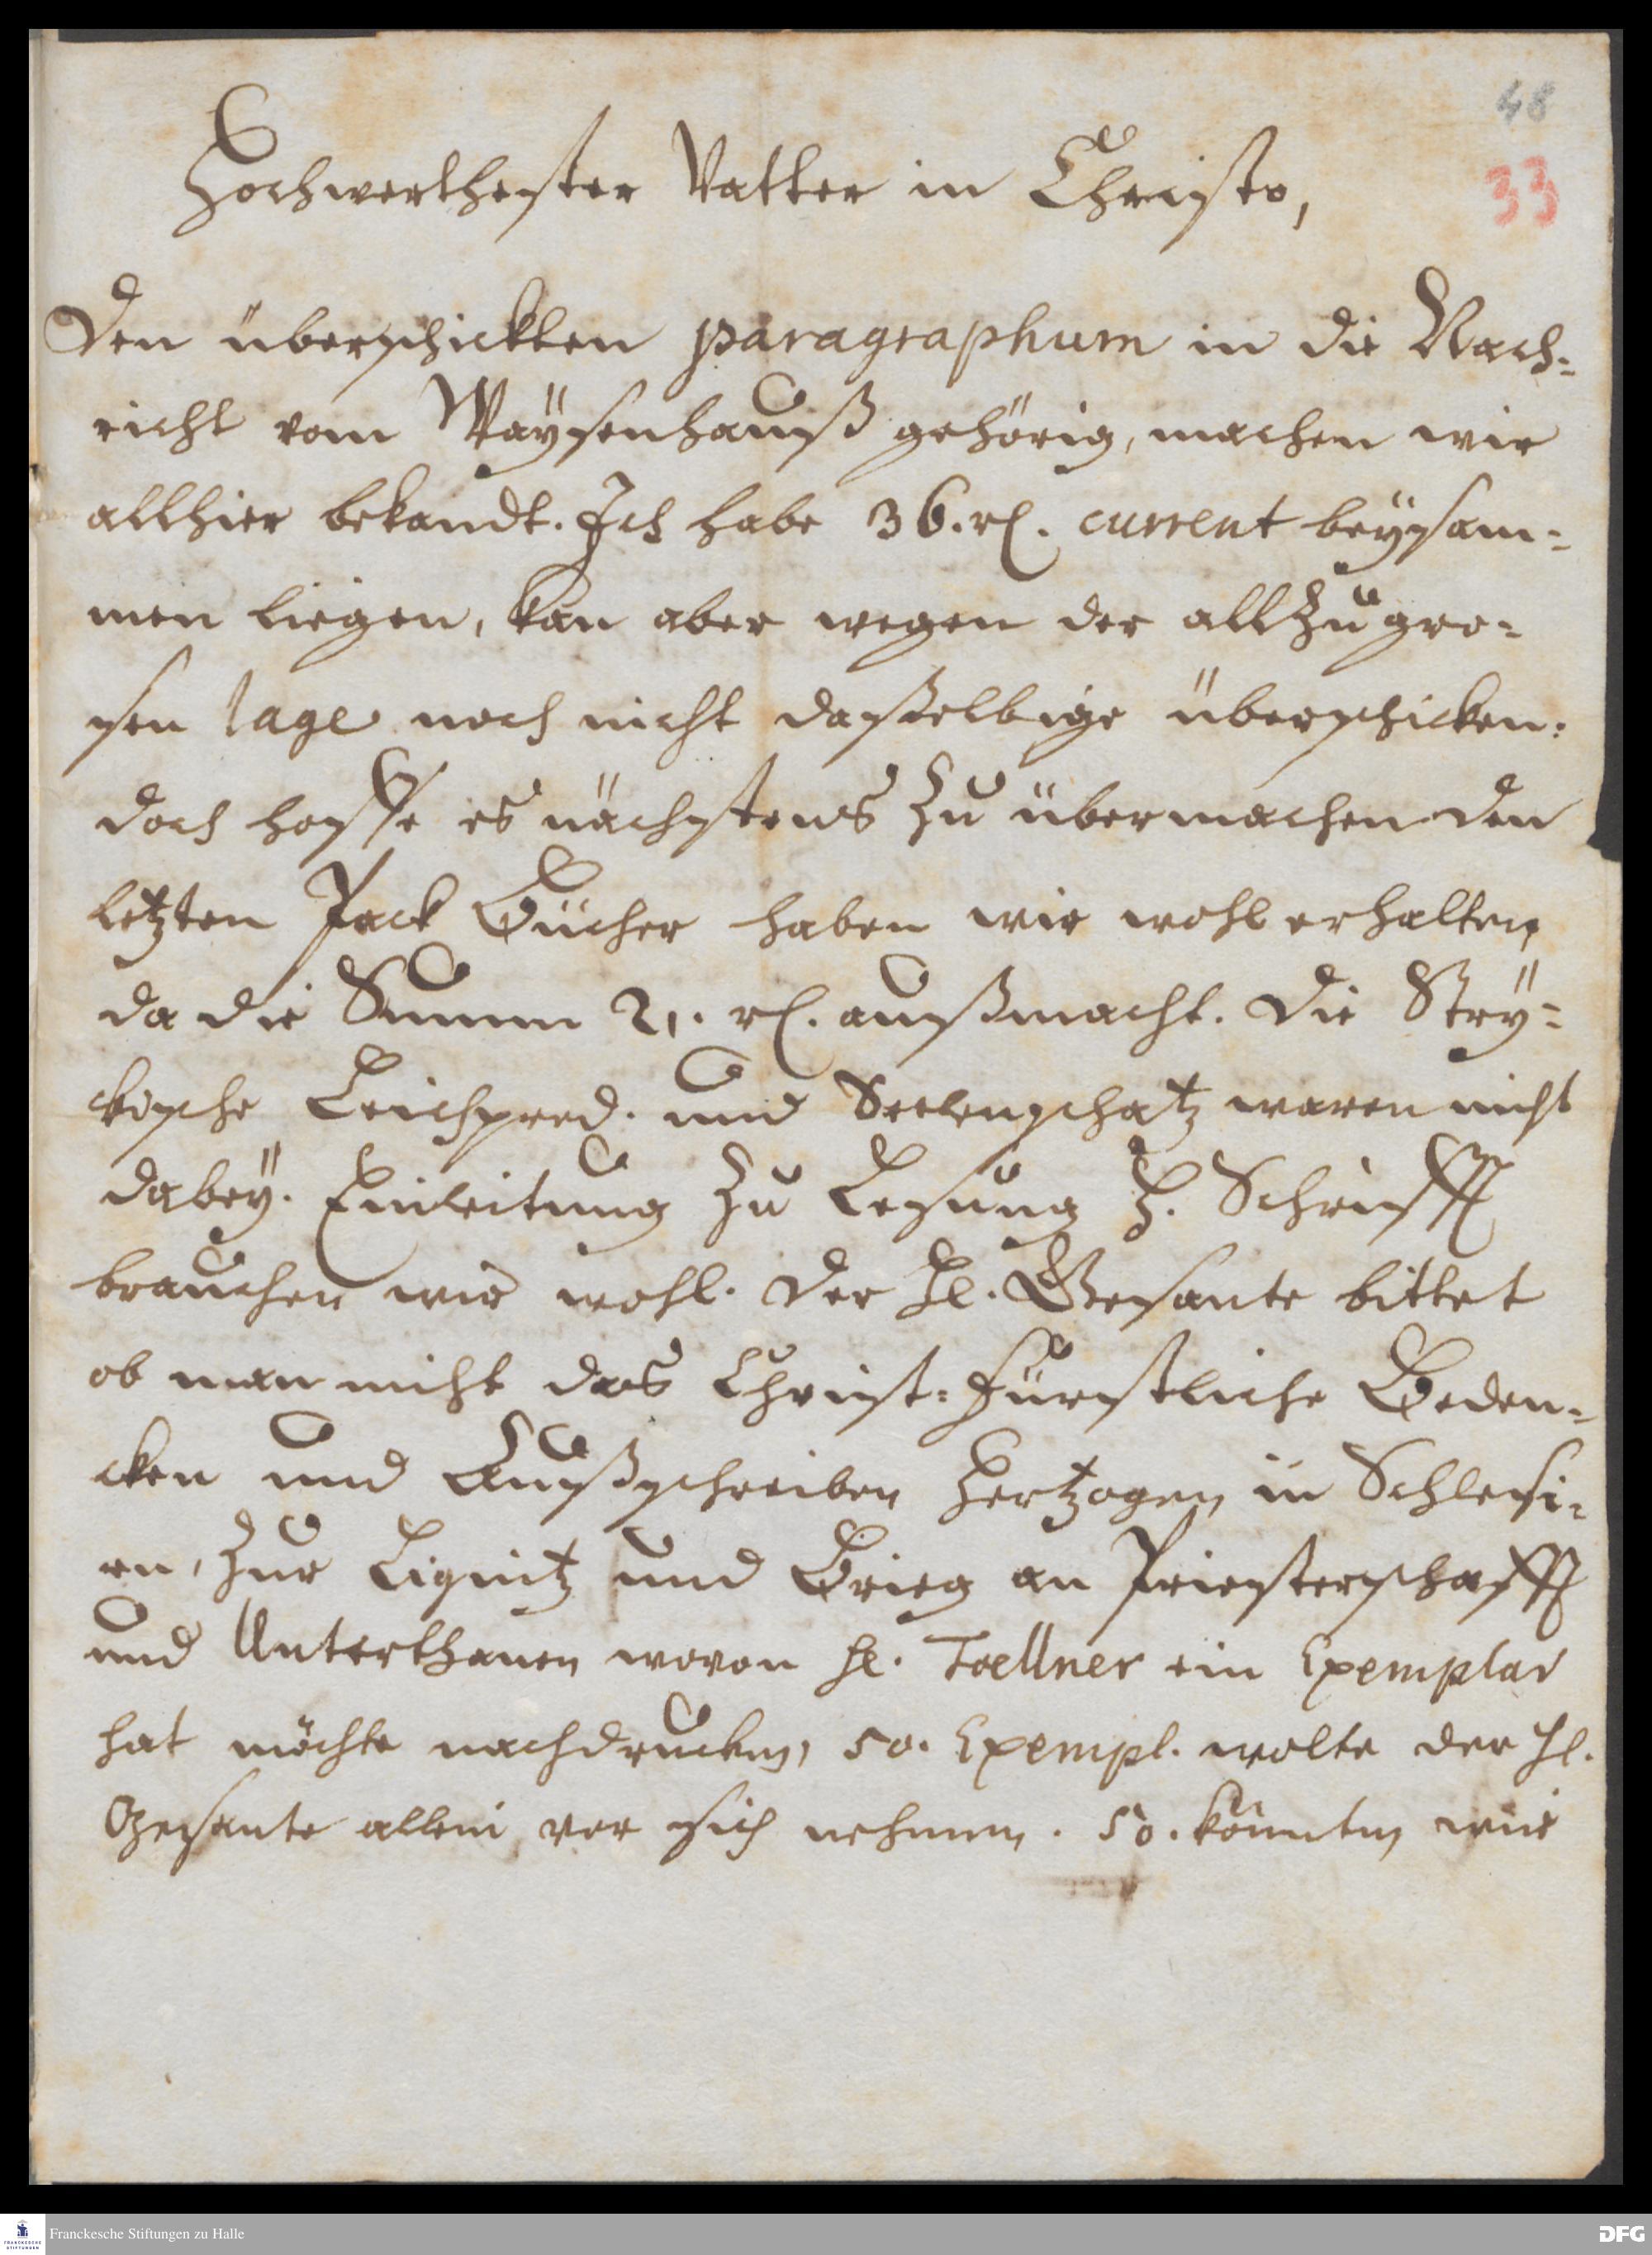 48
33
Hochwerthester Vatter in Christo,
Den überschickten paragraphum in die Nach-
richt vom Waÿsenhauß gehörig, machen wir
allhier bekandt. Ich habe 36. rl. current beÿsam-
men liegen, kan aber wegen der allzugro-
sen lage noch nicht daßelbige überschicken:
doch hoffe es nächstens zu übermachen den
letzten Pack Bücher haben wir wohl erhalten,
da die Summ 21. rl. außmacht. Die Strÿ-
ckische Leichpred. und Seelenschatz waren nicht
dabeÿ. Einleitung zu Lesung H. Schrifft
brauchen wir wohl. Der Hl. Gesante bittet
ob man nicht das Christ-Fürstliche Beden-
cken und Außschreiben Hertzogen in Schlesi-
en, zur Lignitz und Brieg an Priesterschafft
und Unterthanen wovon Hl. Toellner ein Exemplar
hat möchte nachdrucken, 50. Exempl. wolte der Hl.
Gesante allein vor sich nehmen. 50. könnten wir
Franckesche Stiftungen zu Halle
FRANCKESCHE STIFTUNGEN
DFG